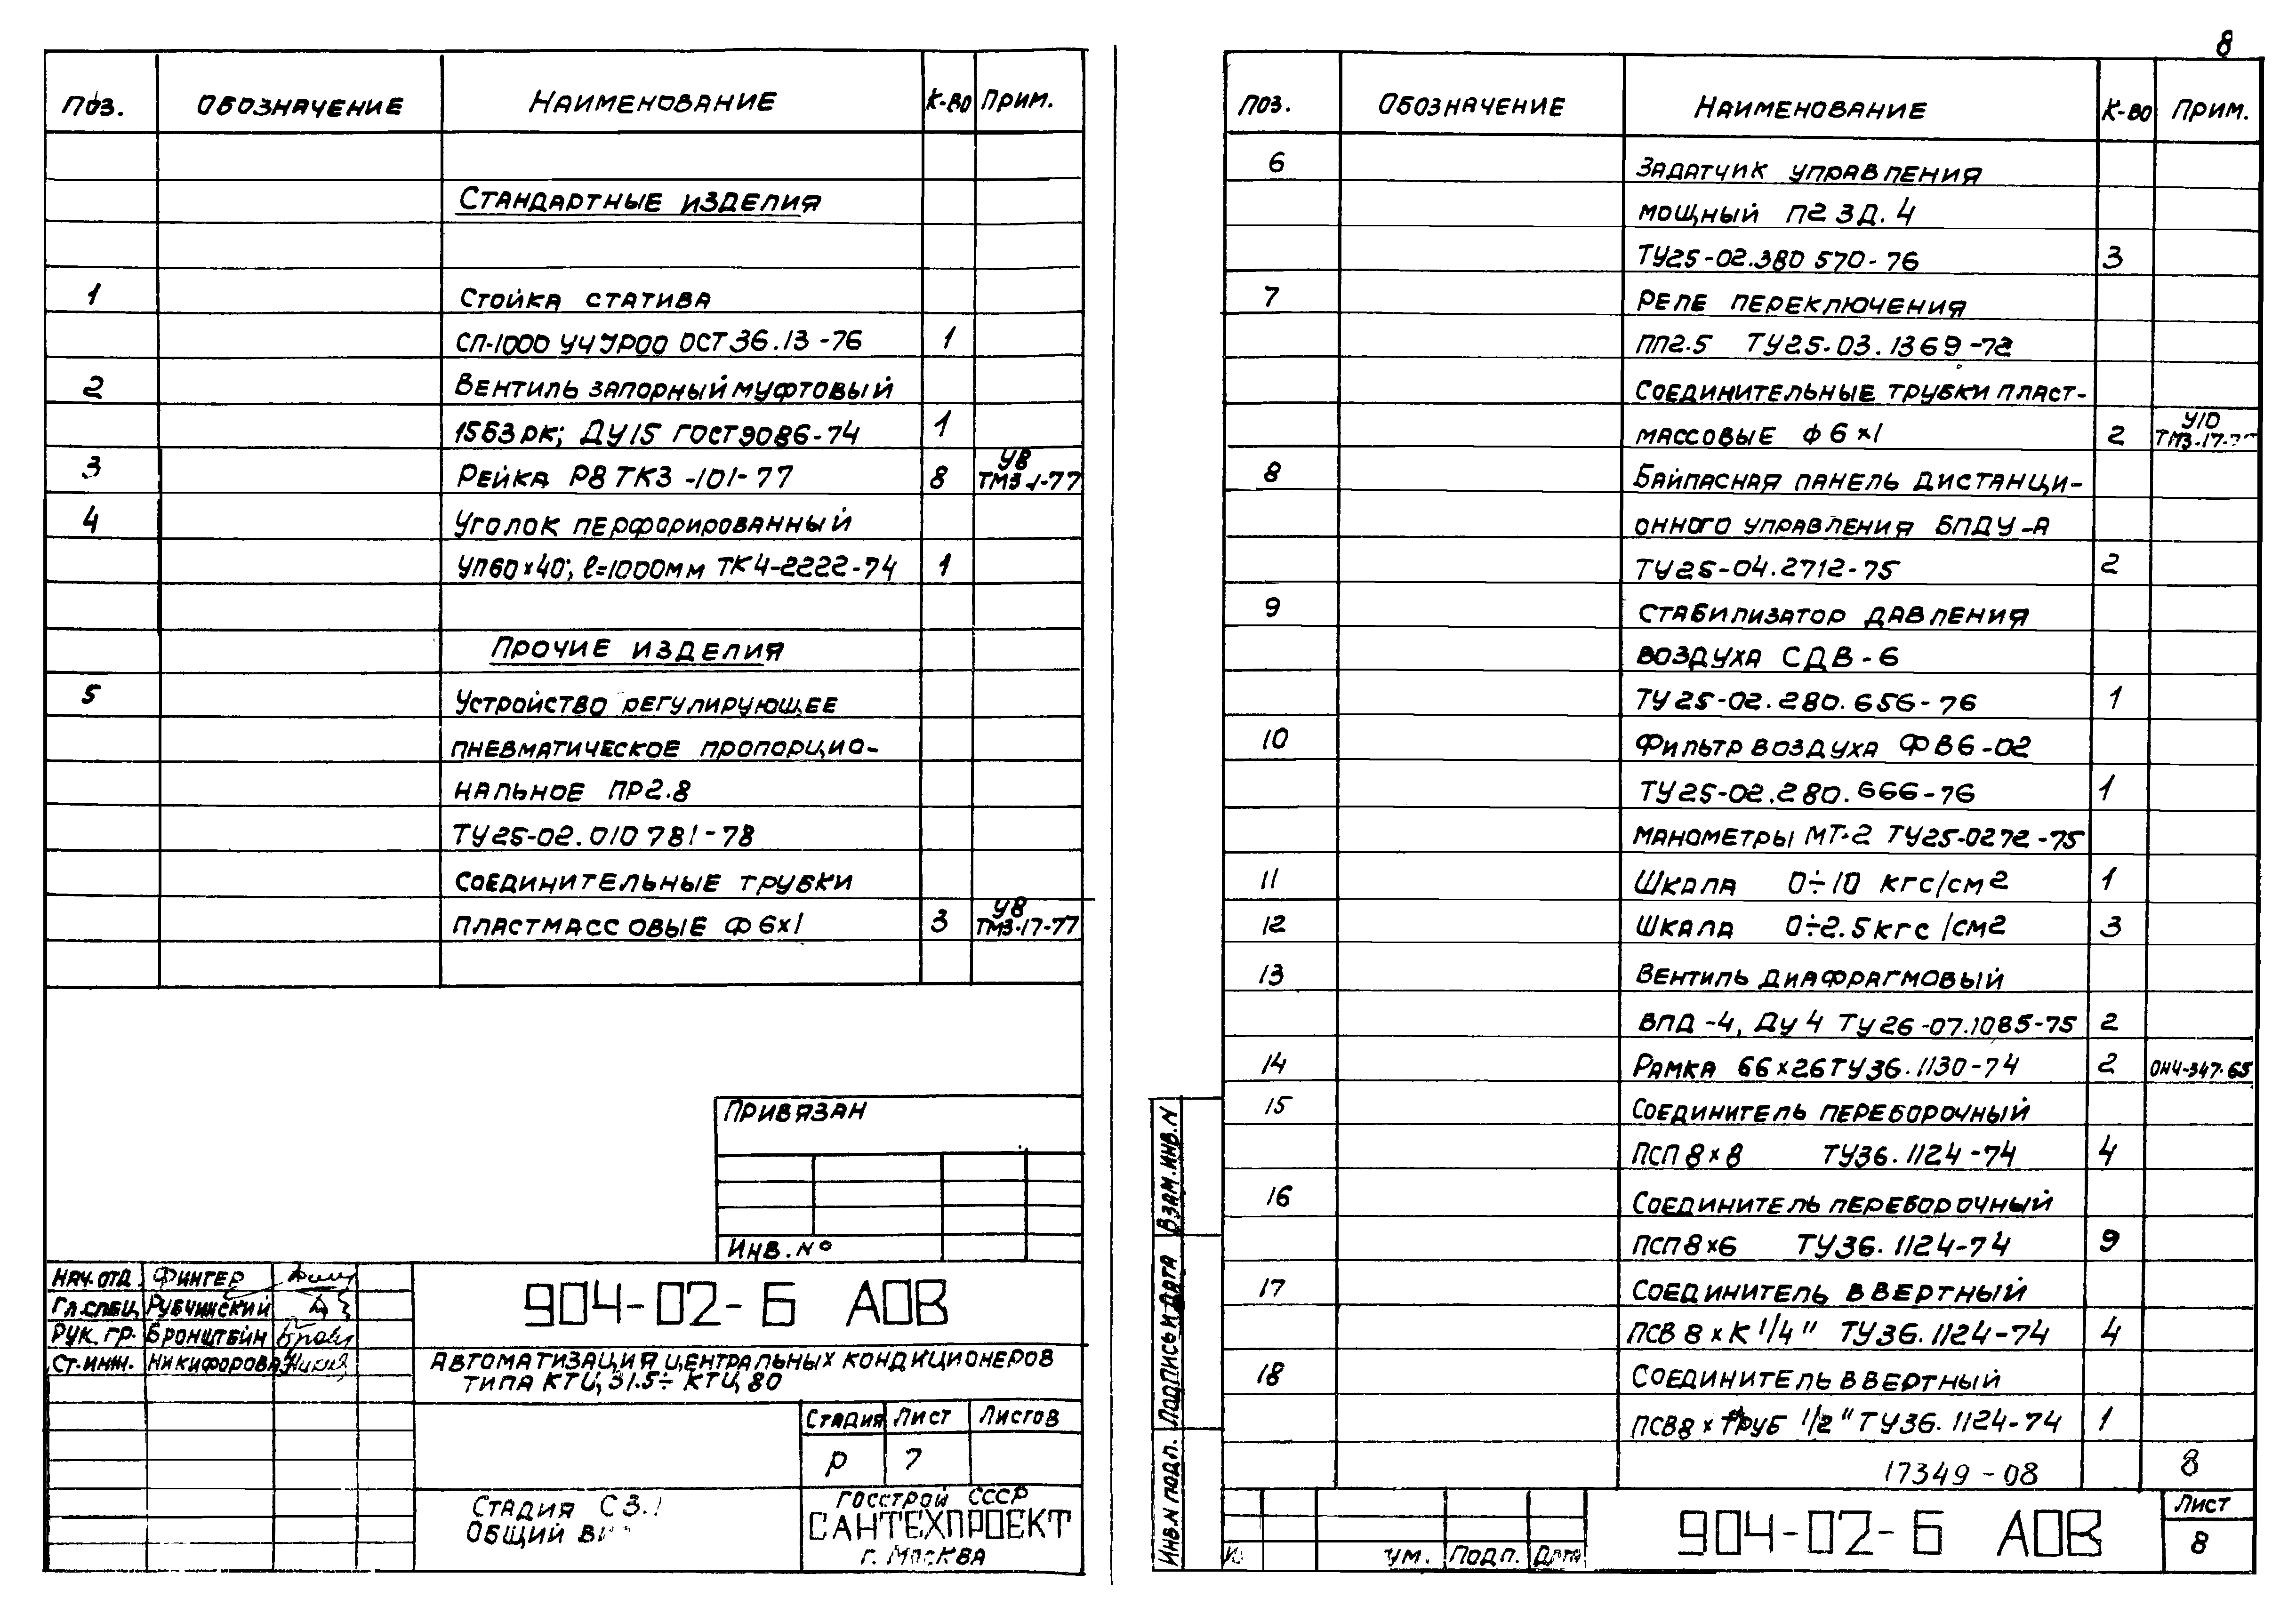 ПОЗ. ОБОЗНАЧЕНИЕ НАИМЕНОВАНИЕ К-ВО ПРИМ.
СТАНДАРТНЫЕ ИЗДЕЛИЯ
1 СТОЙКА СТАТИВА
СП-1000 УЧ УР00 ОСТ 36.13-76 1
2 ВЕНТИЛЬ ЗАПОРНЫЙ МУФТОВЫЙ
15Б3рк; ДУ15 ГОСТ 9086-74 1
3 РЕЙКА Р8 ТК3-101-77 8 У8 ТМ3-1-77
4 УГОЛОК ПЕРФОРИРОВАННЫЙ
УП60×40; ℓ=1000мм ТК4-2222-74 1
ПРОЧИЕ ИЗДЕЛИЯ
5 УСТРОЙСТВО РЕГУЛИРУЮЩЕЕ
ПНЕВМАТИЧЕСКОЕ ПРОПОРЦИО-
НАЛЬНОЕ ПР2.8
ТУ25-02.010 781-78
СОЕДИНИТЕЛЬНЫЕ ТРУБКИ
ПЛАСТМАССОВЫЕ Ф 6×1 3 У8 ТМ3-17-77
ПРИВЯЗАН
ИНВ. №
НАЧ. ОТД. ФИНГЕР
ГЛ. СПЕЦ. РУБЧИНСКИЙ
РУК. ГР. БРОНШТЕЙН
СТ. ИНЖ. НИКИФОРОВА
904-02-Б АОВ
АВТОМАТИЗАЦИЯ ЦЕНТРАЛЬНЫХ КОНДИЦИОНЕРОВ
ТИПА КТЦ 31.5÷ КТЦ 80
СТАДИЯ ЛИСТ ЛИСТОВ
Р 7
СТАДИЯ С3.
ОБЩИЙ
ГОССТРОЙ СССР
САНТЕХПРОЕКТ
г. МОСКВА
8
ПОЗ. ОБОЗНАЧЕНИЕ НАИМЕНОВАНИЕ К-ВО ПРИМ.
6 ЗАДАТЧИК УПРАВЛЕНИЯ
МОЩНЫЙ П2 ЗД. 4
ТУ25-02.380 570-76 3
7 РЕЛЕ ПЕРЕКЛЮЧЕНИЯ
ПП2.5 ТУ25-03.1369-72
СОЕДИНИТЕЛЬНЫЕ ТРУБКИ ПЛАСТ-
МАССОВЫЕ Ф 6×1 2 У10 ТМ3-17-
8 БАЙПАСНАЯ ПАНЕЛЬ ДИСТАНЦИ-
ОННОГО УПРАВЛЕНИЯ БПДУ-А
ТУ25-04.2712-75 2
9 СТАБИЛИЗАТОР ДАВЛЕНИЯ
ВОЗДУХА СДВ-6
ТУ 25-02.280.656-76 1
10 ФИЛЬТР ВОЗДУХА ФВ6-02
ТУ25-02.280.666-76 1
МАНОМЕТРЫ МТ-2 ТУ25-0272-75
11 ШКАЛА 0÷10 кгс/см2 1
12 ШКАЛА 0÷2.5 кгс/см2 3
13 ВЕНТИЛЬ ДИАФРАГМОВЫЙ
ВПД-4, Ду 4 ТУ26-07.1085-75 2
14 РАМКА 66×26 ТУ36.1130-74 2 ОН4-347-65
15 СОЕДИНИТЕЛЬ ПЕРЕБОРОЧНЫЙ
ПСП 8×8 ТУ36.1124-74 4
16 СОЕДИНИТЕЛЬ ПЕРЕБОРОЧНЫЙ
ПСП 8×6 ТУ36.1124-74 9
17 СОЕДИНИТЕЛЬ ВВЕРТНЫЙ
ПСВ 8×К 1/4" ТУ36.1124-74 4
18 СОЕДИНИТЕЛЬ ВВЕРТНЫЙ
ПСВ8×ТРУБ 1/2" ТУ36.1124-74 1
17349-08 8
ВЗАМ. ИНВ. N
ПОДПИСЬ И ДАТА
ИНВ. N ПОДЛ.
УМ. ПОДП. ДАТА
904-02-Б АОВ
ЛИСТ
8